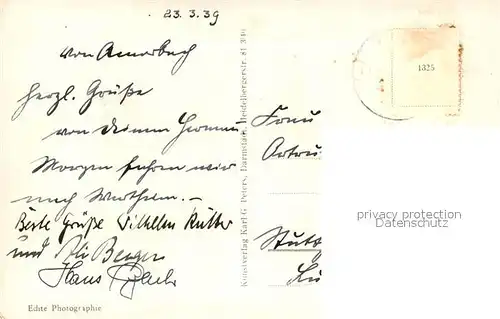 23.3.39
von Amorbach
herzl. Grüße
von Deinem Hermann
Morgen fahren wir
nach Wertheim. –
Beste Grüße Wilhelm Rütter
und Berger
Hans
Echte Photographie
Kunstverlag Karl G. Peters, Darmstadt, Heidelbergerstr. 81 3/10
1325
Frau
Stutt
privacy protection
Datenschutz